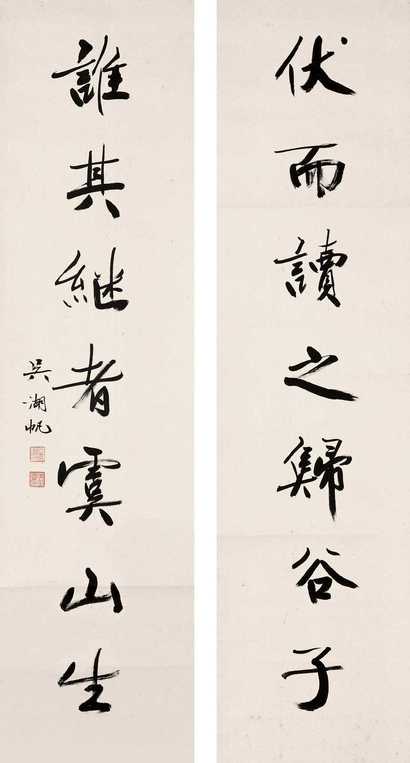 伏而讀之歸谷子
誰其継者虞山生
吳湖帆